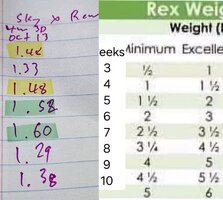 Sky x Rem
Oct 13
1.44
1.33
1.48
1.58
1.60
1.29
1.38
Rex Wei
Weight (
eeks Minimum Excelle
3 ½ 1
4 1 1½
5 1½ 2
6 2 3
7 2½ 3½
8 3¼ 4½
9 4 5
10 4½ 5½
5 6